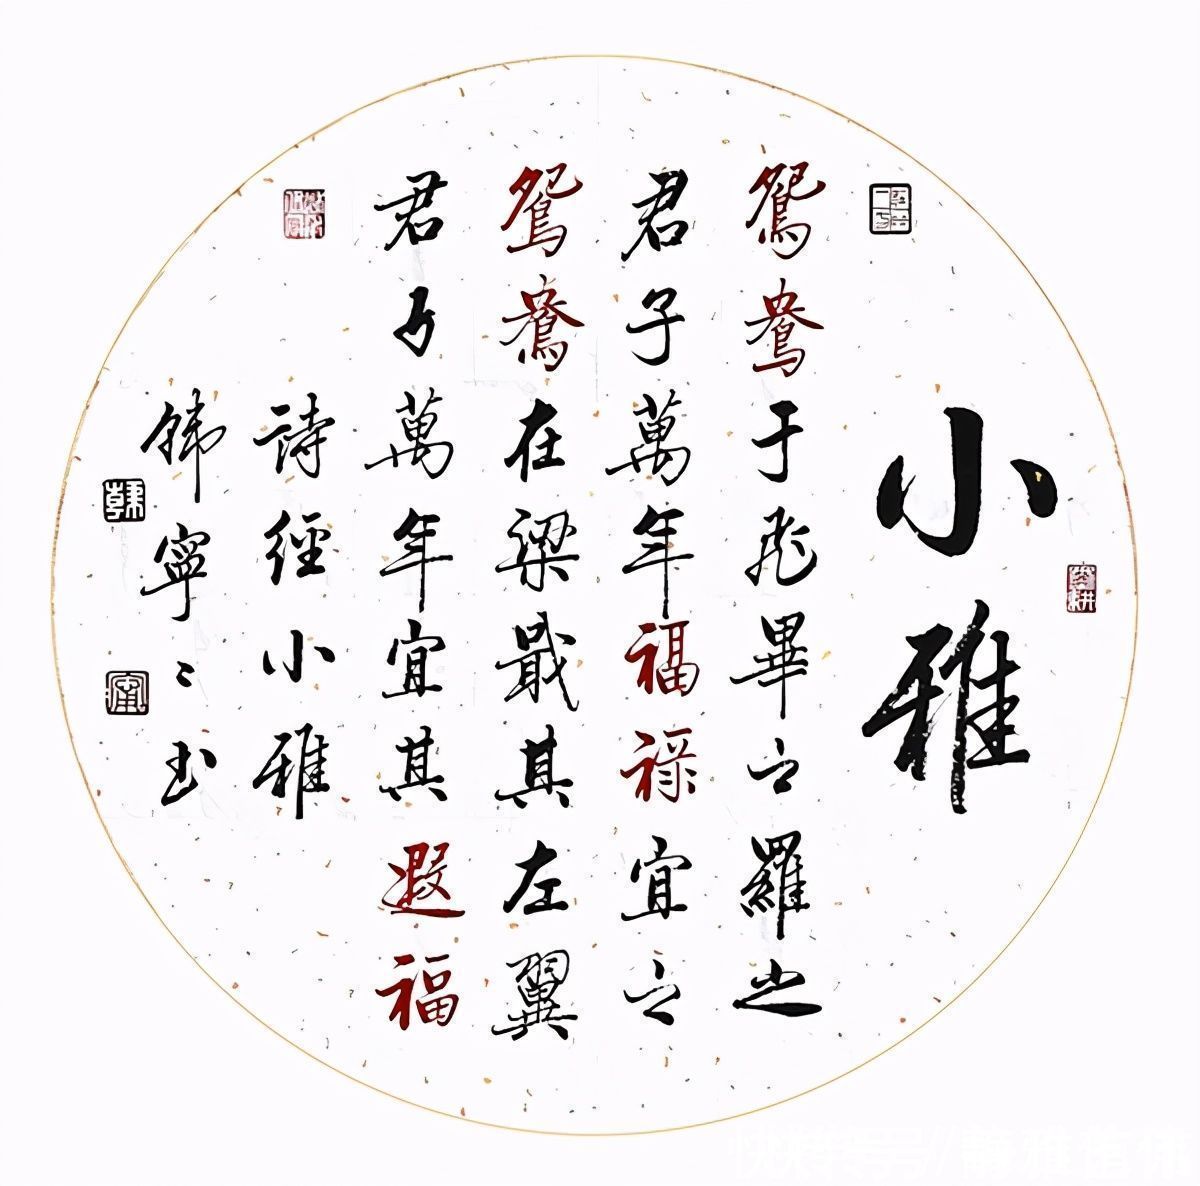 小雅
鴛鴦于飛畢之羅之
君子萬年福祿宜之
鴛鴦在梁戢其左翼
君子萬年宜其遐福
詩經小雅
韓寧寧書